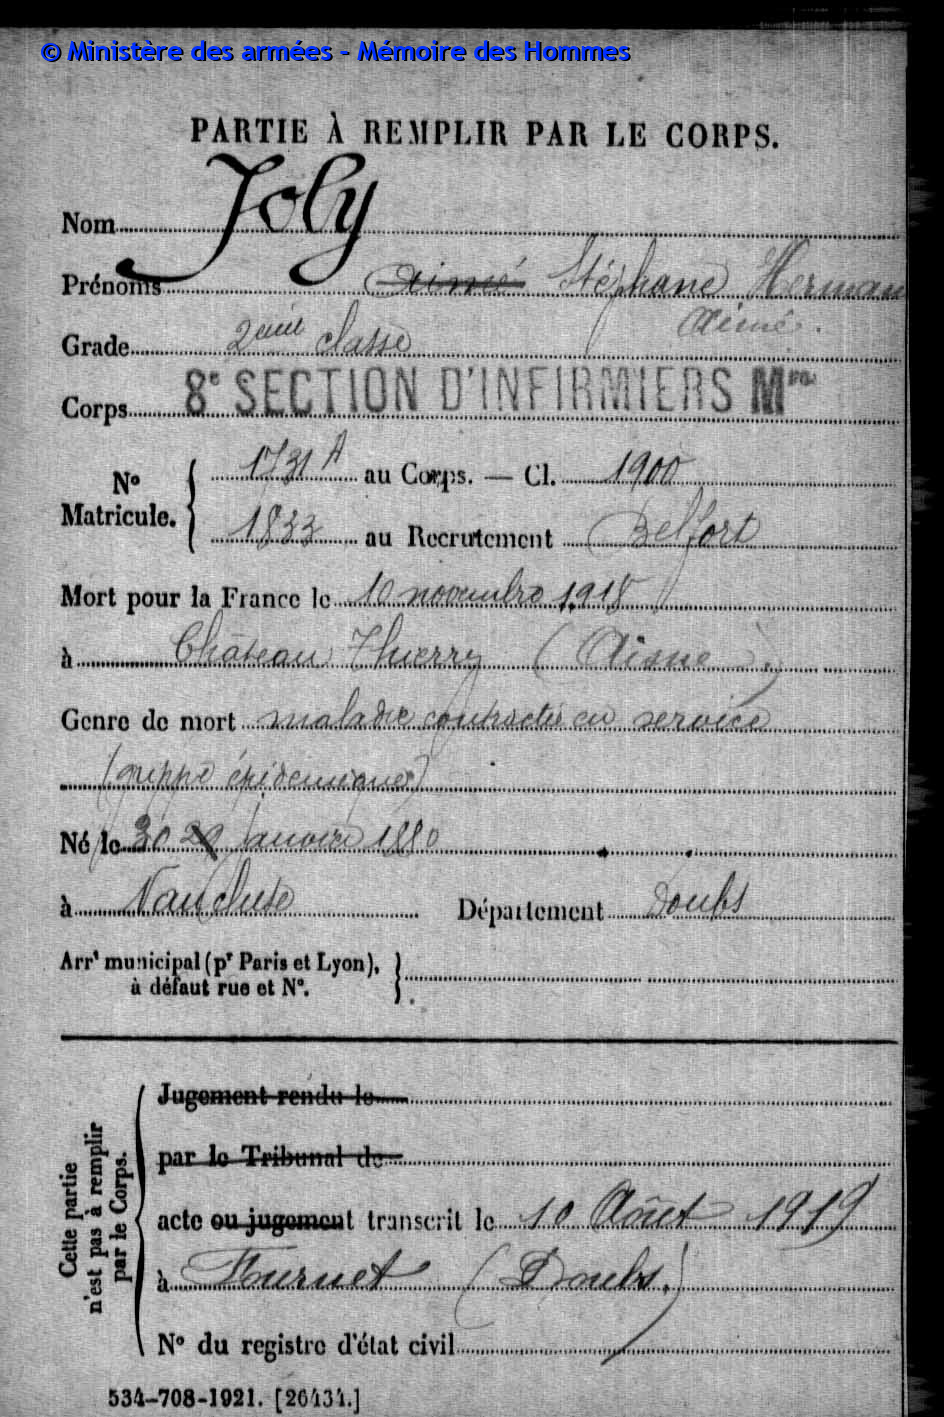 © Ministère des armées - Mémoire des Hommes
PARTIE À REMPLIR PAR LE CORPS.
Nom Joly
Prénoms aimé Stéphane Herman
Aimé.
Grade 2eme classe
Corps 8e SECTION D'INFIRMIERS Mres
No Matricule. { 1731 A au Corps. — Cl. 1900
1833 au Recrutement Belfort
Mort pour la France le 10 novembre 1918
à Château Thierry (Aisne).
Genre de mort maladie contractée en service
(grippe épidemique)
Né le 30 29 janvier 1880
à Vaucluse Département Doubs
Arrt municipal (pr Paris et Lyon), }
à défaut rue et No.
Cette partie n'est pas à remplir par le Corps.
Jugement rendu le
par le Tribunal de
acte ou jugement transcrit le 10 Août 1919
à Fournet (Doubs.)
No du registre d'état civil
534-708-1921. [26434.]